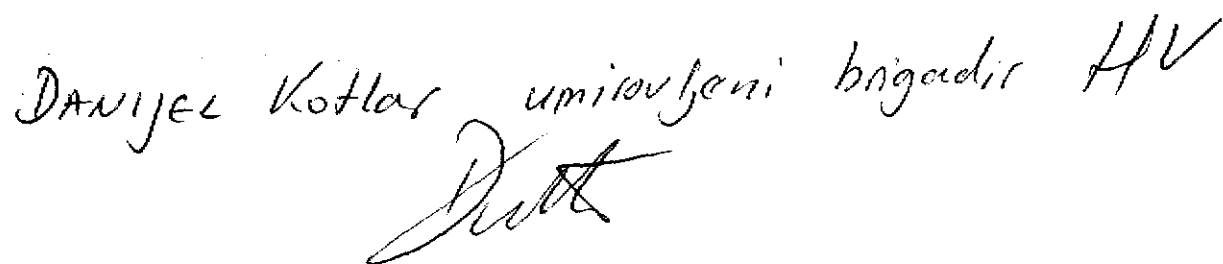 DANIJEL Kotlar umirovljeni brigadir HV